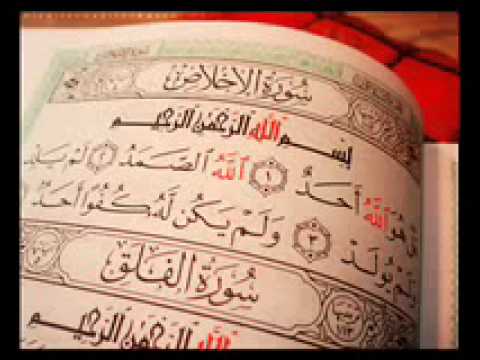 سُورَةُ الإِخْلَاصِ
بِسْمِ اللَّهِ الرَّحْمَٰنِ الرَّحِيمِ
هُوَ اللَّهُ أَحَدٌ ١ اللَّهُ الصَّمَدُ ٢ لَمْ
وَلَمْ يُولَدْ ٣ وَلَمْ يَكُن لَّهُ كُفُوًا أَحَدٌ
سُورَةُ الْفَلَقِ
اللَّهِ الرَّحْمَٰنِ الرَّحِيمِ